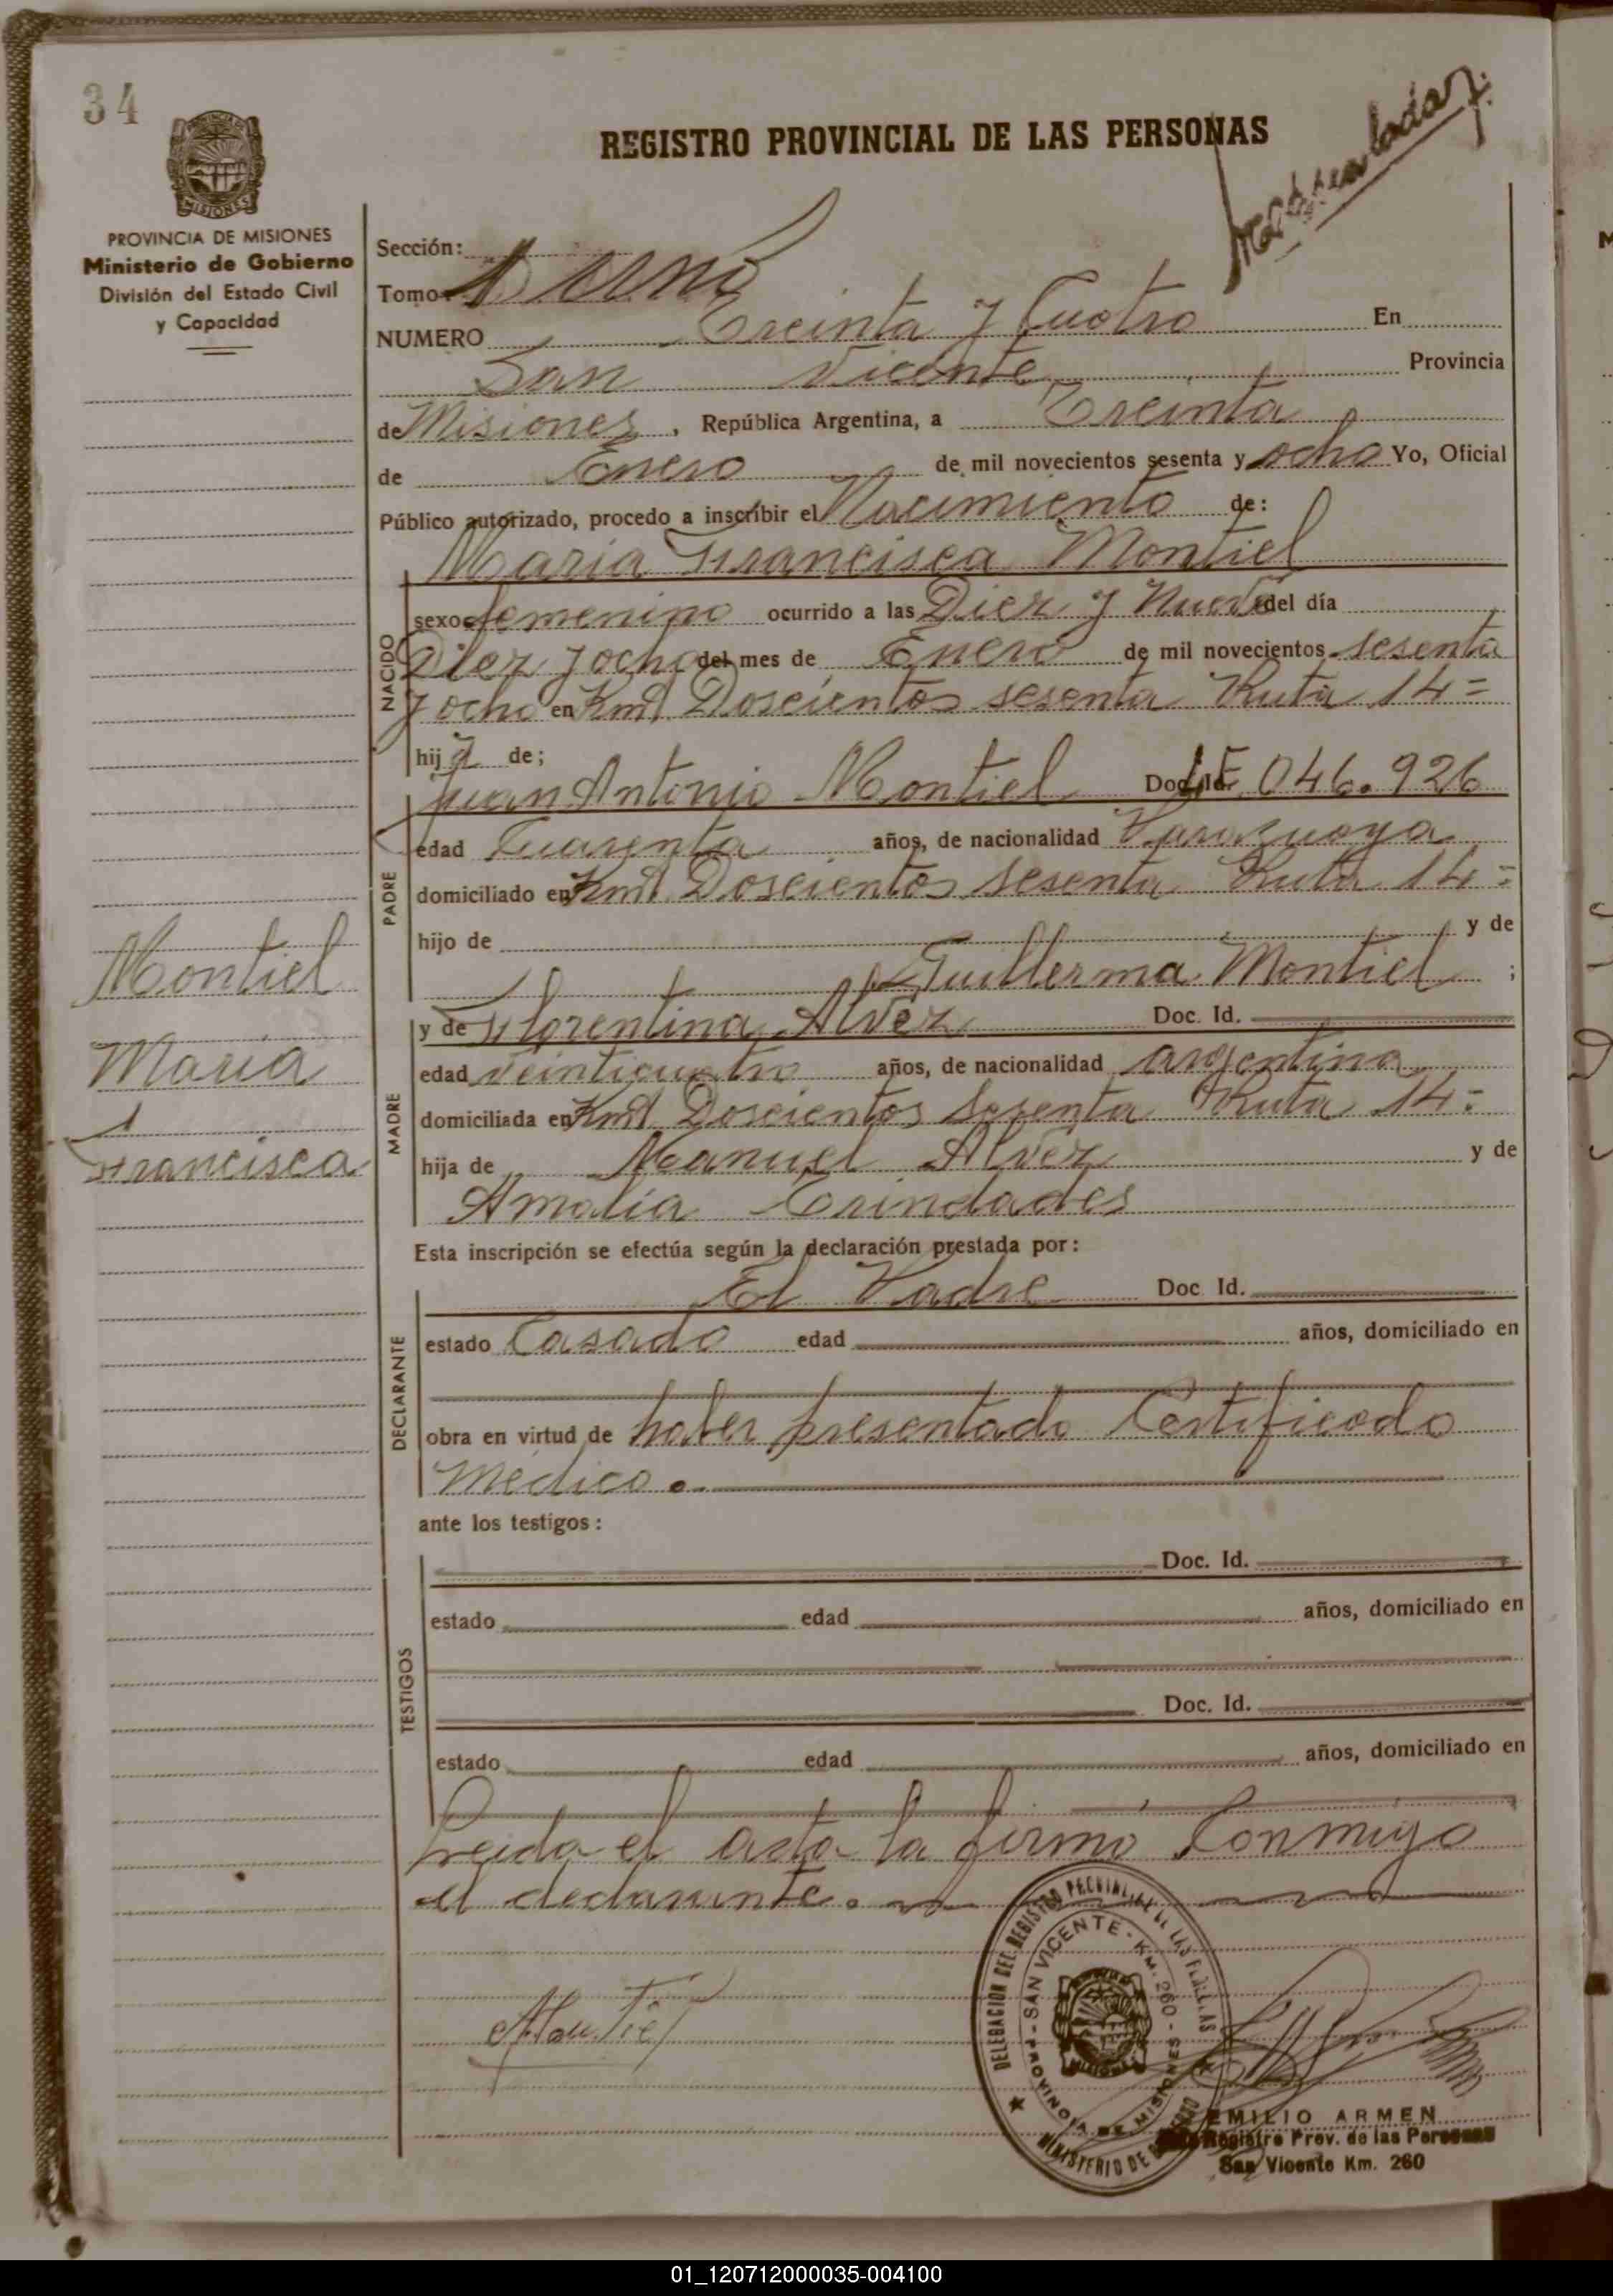 34
REGISTRO PROVINCIAL DE LAS PERSONAS
PROVINCIA DE MISIONES
Ministerio de Gobierno
División del Estado Civil
y Capacidad
Sección:
Tomo
NUMERO Treinta y Cuatro En
San Vicente Provincia
de Misiones, República Argentina, a Treinta
de Enero de mil novecientos sesenta y ocho Yo, Oficial
Público autorizado, procedo a inscribir el Nacimiento de:
Maria Francisca Montiel
NACIDO
sexo femenino ocurrido a las Diez y Nueve del día
Diez y ocho del mes de Enero de mil novecientos sesenta
y ocho en Km Doscientos sesenta Ruta 14=
hija de;
Juan Antonio Montiel Doc. Id. 046.926
PADRE
edad Cuarenta años, de nacionalidad Paraguaya
domiciliado en Km Doscientos sesenta Ruta 14=
hijo de y de
Guillerma Montiel ;
Montiel
Maria
Francisca
MADRE
y de Florentina Alvez Doc. Id.
edad veinticuatro años, de nacionalidad argentina
domiciliada en Km Doscientos Sesenta Ruta 14=
hija de Manuel Alvez y de
Amalia Trindades
Esta inscripción se efectúa según la declaración prestada por:
El Padre Doc. Id.
DECLARANTE
estado Casado edad años, domiciliado en
obra en virtud de haber presentado Certificado
Médico.
ante los testigos:
TESTIGOS
Doc. Id.
estado edad años, domiciliado en
Doc. Id.
estado edad años, domiciliado en
Leida el acta la firmó Conmigo
el declarante.
DELEGACION DEL REGISTRO PROVINCIAL DE LAS PERSONAS
SAN VICENTE - KM. 260 -
PROVINCIA DE MISIONES
MINISTERIO DE GOBIERNO
MISIONES
Montiel
EMILIO ARMEN
Registro Prov. de las Personas
San Vicente Km. 260
01_120712000035-004100